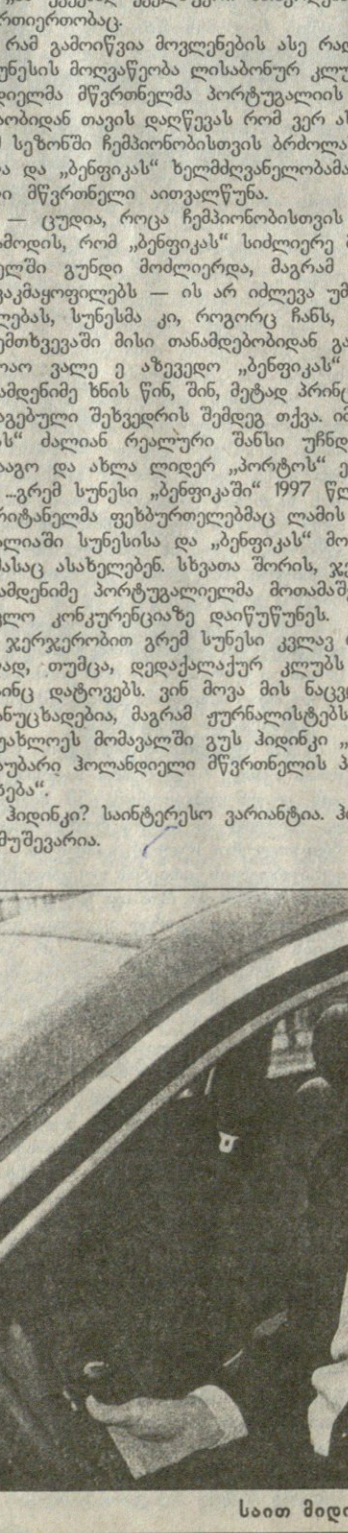 რთიერთობაც.
რამ გამოიწვია მოვლენების ასე რად
უნესის მოღვაწეობა ლისაბონურ კლუ
დიელმა მწვრთნელმა პორტუგალიის
აობიდან თავის დაღწევას რომ ვერ ას
მ სეზონში ჩემპიონობისთვის ბრძოლა
ა და „ბენფიკას“ ხელმძღვანელობამა
ი მწვრთნელი აითვალწუნა.
— ცუდია, როცა ჩემპიონობისთვის
ამოდის, რომ „ბენფიკას“ სიძლიერე
ელში გუნდი მოძლიერდა, მაგრამ
ვაკმაყოფილებს — ის არ იძლევა უმ
ლებას, სუნესმა კი, როგორც ჩანს,
ემთხვევაში მისი თანამდებობიდან გა
ოაო ვალე ე აზევედო „ბენფიკას“
ამდენიმე ხნის წინ, შინ, მეტად პრინც
აგებული შეხვედრის შემდეგ თქვა. იმ
ს“ ძალიან რეალური შანსი უჩნდ
ააგო და ახლა ლიდერ „პორტოს“ ე
...გრემ სუნესი „ბენფიკაში“ 1997 წლ
რიტანელმა ფეხბურთელებმაც ლამის
ალიაში სუნესისა და „ბენფიკას“ მო
მასაც ასახელებენ. სხვათა შორის, ჯე
ამდენიმე პორტუგალიელმა მოთამაშე
ვლო კონკურენციაზე დაიწუწუნეს.
ჯერჯერობით გრემ სუნესი კვლავ
ად, თუმცა, დედაქალაქურ კლუბს
ინც დატოვებს. ვინ მოვა მის ნაცვ
ანუცხადებია, მაგრამ ჟურნალისტებს
უახლოეს მომავალში გუს ჰიდინკი „
აუბარი ჰოლანდიელი მწვრთნელის პ
სება“.
ჰიდინკი? საინტერესო ვარიანტია. ჰი
მუშევარია.
საით მიდი